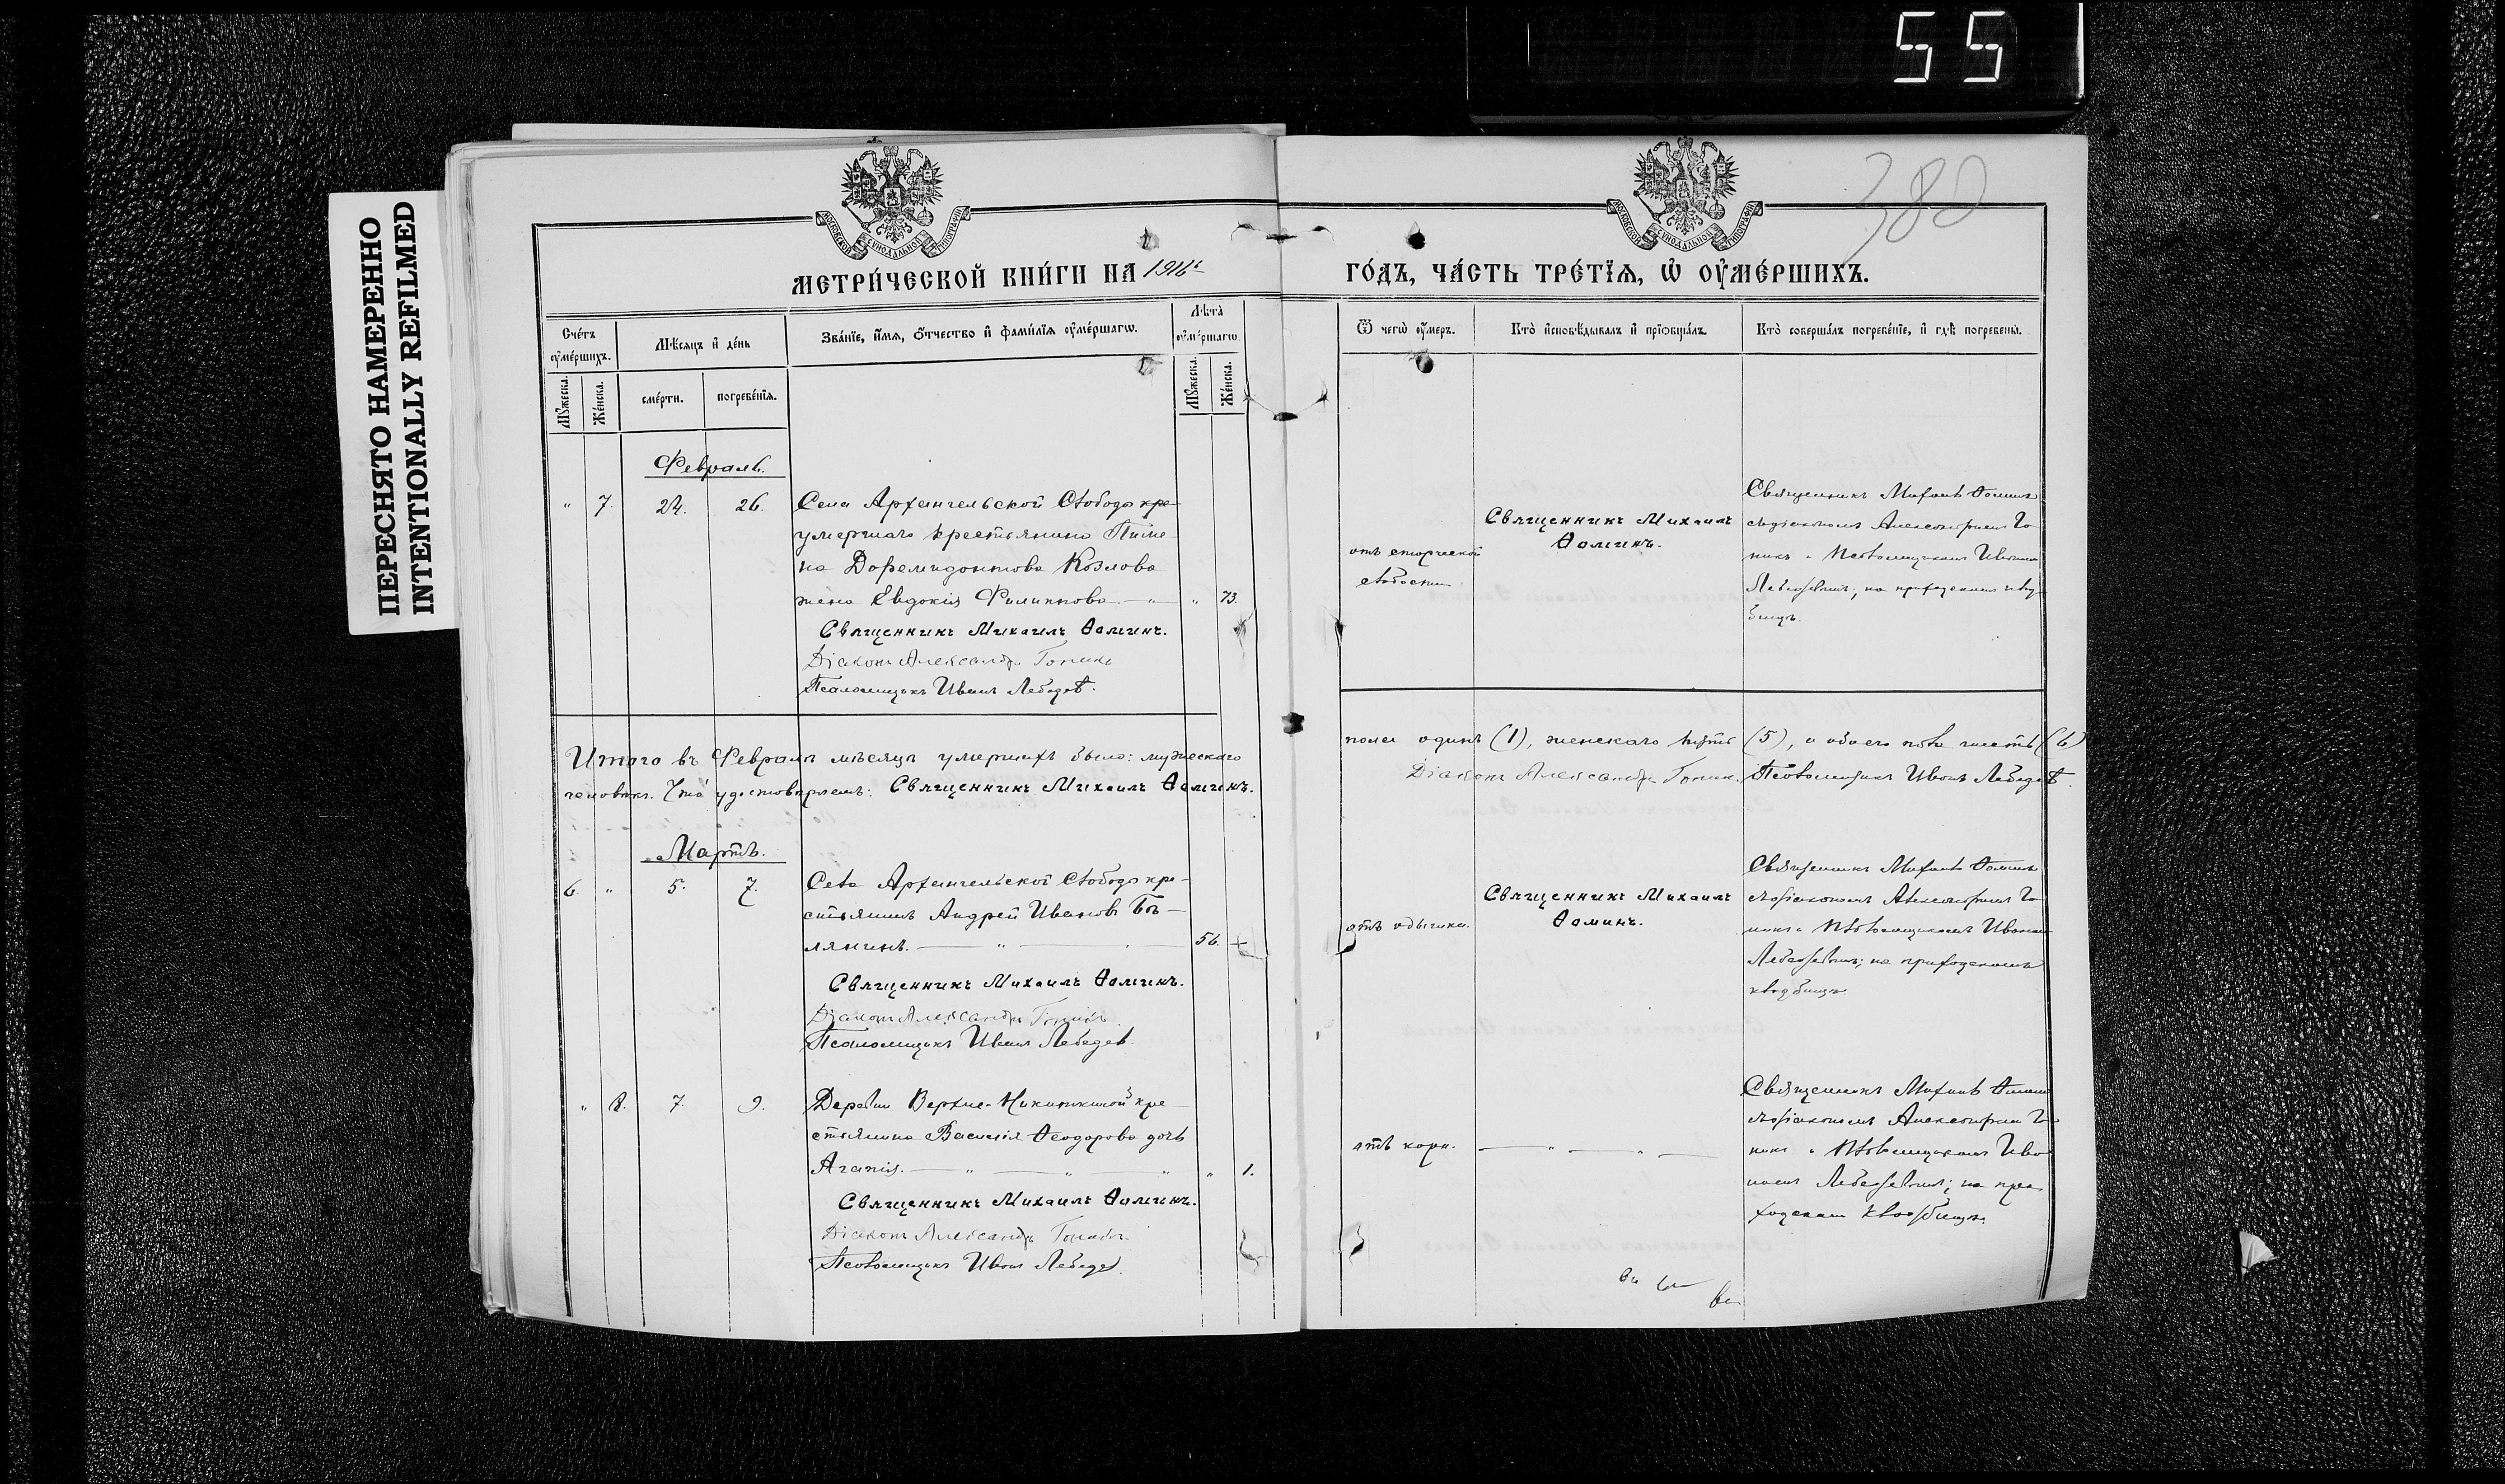 55
ПЕРЕСНЯТО НАМЕРЕННО
INTENTIONALLY REFILMED
380
МОСКОВСКОЙ СУНОДАЛЬНОЙ ТИПОГРАФІИ
МОСКОВСКОЙ СУНОДАЛЬНОЙ ТИПОГРАФІИ
МЕТРИ́ЧЕСКОЙ КНИ́ГИ НА 1916 г.
ГО́ДЪ, ЧА́СТЬ ТРЕ́ТЇѦ, Ѡ҆ ОУ҆МЕ́РШИХЪ.
Счéтъ оу҆мéршихъ.
Мѣ́сяцъ и҆ дéнь
Звáнїе, и҆́мя, ѻ҆́тчество и҆ фами́лїя оу҆мéршагѡ.
Лѣ́та оу҆мéршагѡ
Ѿ чегѡ̀ оу҆́меръ.
Ктò и҆сповѣ́дывалъ и҆ прїѡбщáлъ.
Ктò совершáлъ погребéнїе, и҆ гдѣ̀ погребены̀.
Мꙋ́жеска.
Жéнска.
смéрти.
погребéнїя.
Мꙋ́жеска.
Жéнска.
Февраль.
" 7. 24. 26. Села Архангельской Слободы кре-
умершаго крестьянина Пиме-
на Доремидонтова Козлова
жена Евдокія Филиппова — " — " 73.
Священникъ Михаилъ Ѳоминъ.
Діаконъ Александръ
Псаломщикъ Иванъ Лебедевъ.
отъ старческой
слабости.
Священникъ Михаилъ
Ѳоминъ.
Священникъ Михаилъ Ѳоминъ
съ діакономъ Александромъ Го-
и Псаломщикомъ Иваномъ
Лебедевымъ; на приходскомъ клад-
бищѣ.
Итого въ Февралѣ мѣсяцѣ умершихъ было: мужескаго
пола одинъ (1), женскаго пять (5), а обоего пола шесть (6)
человѣкъ. Что удостовѣряемъ: Священникъ Михаилъ Ѳоминъ.
Діаконъ Александръ Псаломщикъ Иванъ Лебедевъ.
Мартъ.
6. " 5. 7. Села Архангельской Слободы кре-
стьянинъ Андрей Ивановъ Бѣ-
лянинъ. — " — 56.
Священникъ Михаилъ Ѳоминъ.
Діаконъ Александръ
Псаломщикъ Иванъ Лебедевъ.
отъ одышки.
Священникъ Михаилъ
Ѳоминъ.
Священникъ Михаилъ Ѳоминъ
съ діакономъ Александромъ Го-
и Псаломщикомъ Иваномъ
Лебедевымъ; на приходскомъ
кладбищѣ.
" 8. 7. 9. Деревни Верхне-Никиткиной кре-
стьянина Василія Ѳеодорова дочь
Агапія. — " — " — " " 1.
Священникъ Михаилъ Ѳоминъ.
Діаконъ Александръ
Псаломщикъ Иванъ Лебедевъ.
отъ кори.
— " — " —
Священникъ Михаилъ Ѳоминъ
съ діакономъ Александромъ Го-
и Псаломщикомъ Ива-
номъ Лебедевымъ; на при-
ходскомъ кладбищѣ.